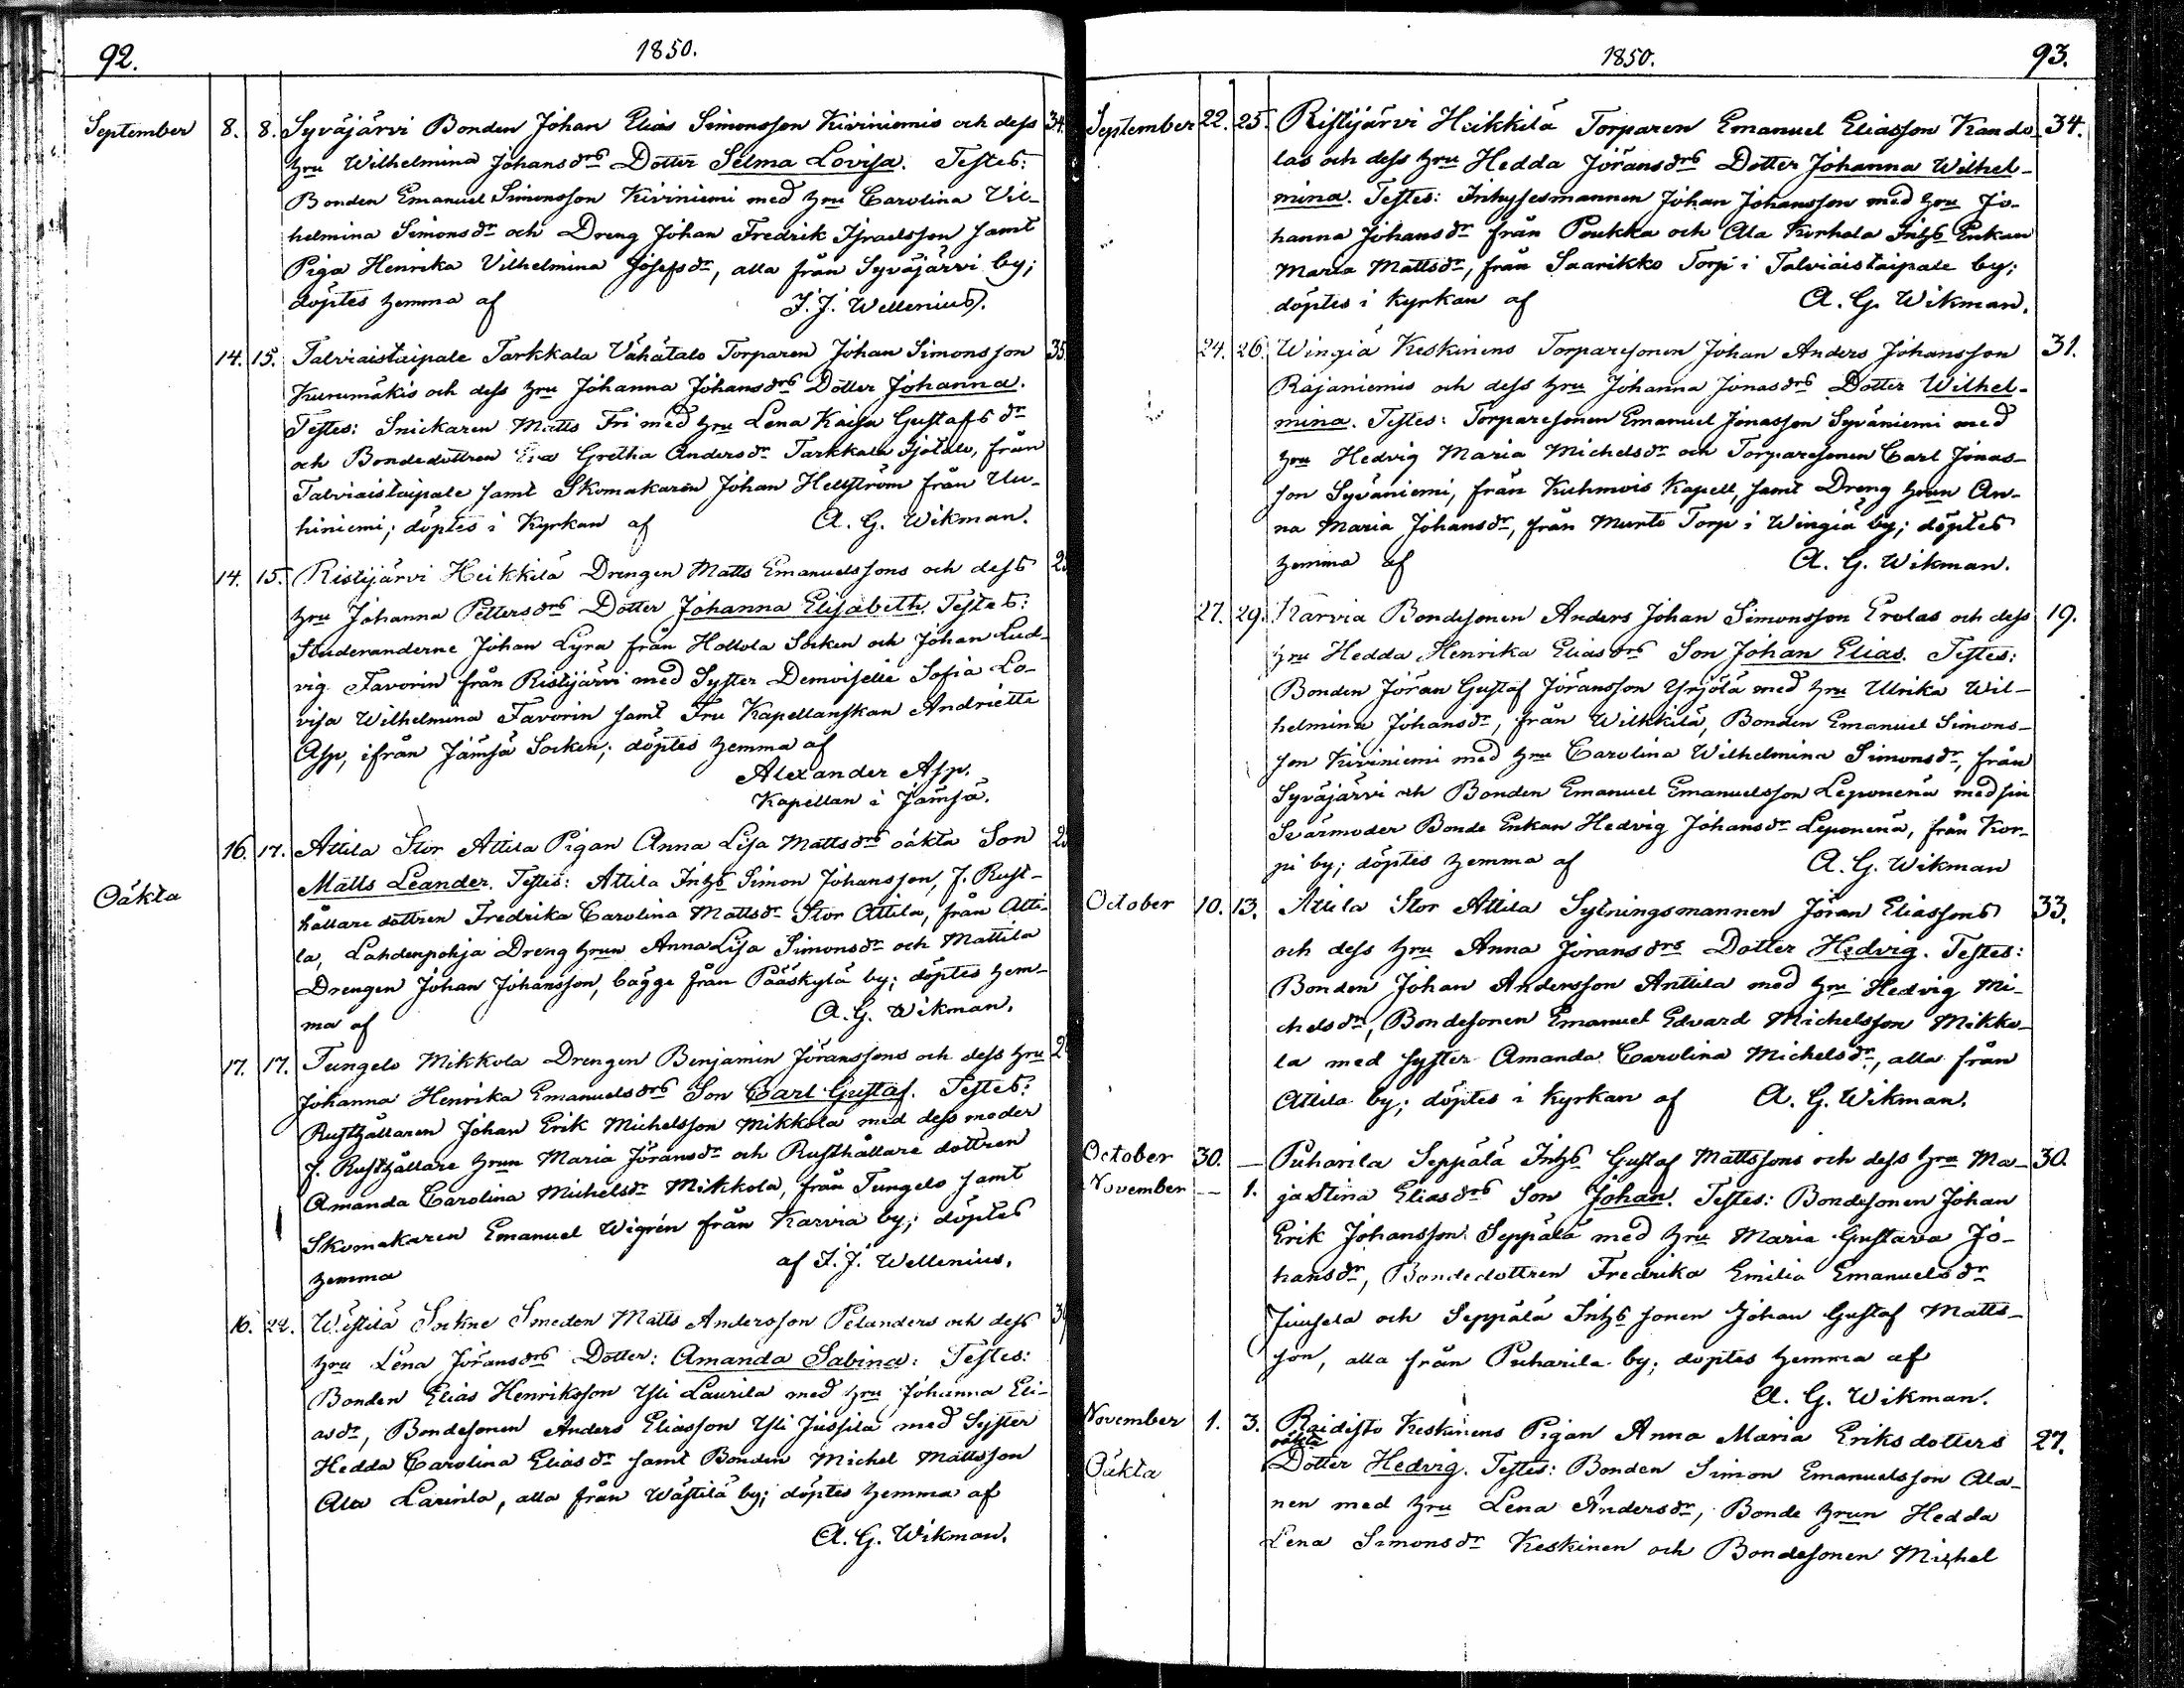 92.
1850.
September 8. 8. Syväjärvi Bonden Johan Elias Simonsson Kiviniemis och dess 34.
hru Wilhelmina Johansdrs Dotter Selma Lovisa. Testes:
Bonden Emanuel Simonsson Kiviniemi med hru Carolina Vil-
helmina Simonsdr och Dreng Johan Fredrik Israelsson samt
Piga Henrika Vilhelmina Josefsdr, alla från Syväjärvi by;
döptes hemma af F. J. Wellenius.
14. 15. Talviaistaipale Tarkkala Vähätalo Torparen Johan Simonsson 35
Kurumäkis och dess hru Johanna Johansdrs Dotter Johanna.
Testes: Snickaren Matts Fri med hru Lena Kaisa Gustafsdr
och Bondedottren Eva Gretha Andersdr Tarkkala Isotalo, från
Talviaistaipale samt Skomakaren Johan Hellström från Uu-
hiniemi; döptes i Kyrkan af A. G. Wikman.
14. 15. Ristijärvi Heikkilä Drengen Matts Emanuelssons och dess
hru Johanna Pettersdrs Dotter Johanna Elisabeth. Testes:
Studeranderne Johan Lyra från Hollola Socken och Johan Lud-
vig Favorin från Ristijärvi med Syster Demoiselle Sofia Lo-
visa Wilhelmina Favorin samt Fru Kapellanskan Andriette
Asp, ifrån Jämsä Socken; döptes hemma af
Alexander Asp.
Kapellan i Jämsä.
16. 17. Attila Stor Attila Pigan Anna Lisa Mattsdrs oäkta Son
Oäkta
Matts Leander. Testes: Attila Inhs Simon Johansson, f. Rust-
hållare dottren Fredrika Carolina Mattsdr Stor Attila, från Atti-
la, Lahdenpohja Dreng hrun Anna Lisa Simonsdr och Mattila
Drengen Johan Johansson, bägge från Pääskylä by; döptes hem-
ma af A. G. Wikman.
17. 17. Tungelo Mikkola Drengen Benjamin Jöranssons och dess hru
Johanna Henrika Emanuelsdrs Son Carl Gustaf. Testes:
Rusthållaren Johan Erik Michelsson Mikkola med dess moder
f. Rusthållare hrun Maria Jöransdr och Rusthållare dottren
Amanda Carolina Michelsdr Mikkola, från Tungelo samt
Skomakaren Emanuel Wigrén från Karvia by; döptes
hemma af F. J. Wellenius.
16. 22. Wästilä Sockne Smeden Matts Andersson Pelanders och dess
hru Lena Jöransdrs Dotter: Amanda Sabina: Testes:
Bonden Elias Henriksson Yli Laurila med hru Johanna Eli-
asdr, Bondesonen Anders Eliasson Yli Jussila med Syster
Hedda Carolina Eliasdr samt Bonden Michel Mattsson
Ala Laurila, alla från Wästilä by; döptes hemma af
A. G. Wikman.
1850.
93.
September 22. 25. Ristijärvi Heikkilä Torparen Emanuel Eliasson Kando- 34.
las och dess hru Hedda Jöransdrs Dotter Johanna Wilhel-
mina. Testes: Inhysesmannen Johan Johansson med hru Jo-
hanna Johansdr från Poukka och Ala Kirhola Inhs Enkan
Maria Mattsdr, från Saarikko Torp i Talviaistaipale by;
döptes i Kyrkan af A. G. Wikman.
24. 26. Wingiä Keskinens Torparesonen Johan Anders Johansson 31.
Rajaniemis och dess hru Johanna Jonasdrs Dotter Wilhel-
mina. Testes: Torparesonen Emanuel Jonasson Syväniemi med
hru Hedvig Maria Michelsdr och Torparesonen Carl Jonas-
son Syväniemi, från Kuhmois Kapell, samt Dreng hrun An-
na Maria Johansdr, från Murto Torp i Wingiä by; döptes
hemma af A. G. Wikman.
27. 29. Karvia Bondesonen Anders Johan Simonsson Erolas och dess 19.
hru Hedda Henrika Eliasdrs Son Johan Elias. Testes:
Bonden Jöran Gustaf Jöransson Yrjölä med hru Ulrika Wil-
helmina Johansdr, från Wilkkilä, Bonden Emanuel Simons-
son Kiviniemi med hru Carolina Wilhelmina Simonsdr, från
Syväjärvi och Bonden Emanuel Emanuelsson Leponena med sin
Svärmoder Bonde Enkan Hedvig Johansdr Leponena, från Kor-
pi by; döptes hemma af A. G. Wikman
October 10. 13. Attila Stor Attila Sytningsmannen Jöran Eliassons 33.
och dess hru Anna Joransdrs Dotter Hedvig. Testes:
Bonden Johan Andersson Anttila med hru Hedvig Mi-
chelsdr, Bondesonen Emanuel Edvard Michelsson Mikko-
la med syster Amanda Carolina Michelsdr, alla från
Attila by; döptes i kyrkan af A. G. Wikman.
October 30. — Puharila Seppälä Inhs Gustaf Mattssons och dess hru Ma- 30.
November — 1. jastina Eliasdrs Son Johan. Testes: Bondesonen Johan
Erik Johansson Seppälä med hru Maria Gustava Jo-
hansdr, Bondedottren Fredrika Emilia Emanuelsdr
Juusela och Seppälä Inhs sonen Johan Gustaf Matts-
son, alla från Puharila by; döptes hemma af
A. G. Wikman.
November 1. 3. Raidisto Keskinens Pigan Anna Maria Eriksdotters 27.
oäkta
Oäkta
Dotter Hedvig. Testes: Bonden Simon Emanuelsson Ala-
nen med hru Lena Andersdr, Bonde hrun Hedda
Lena Simonsdr Keskinen och Bondesonen Michel